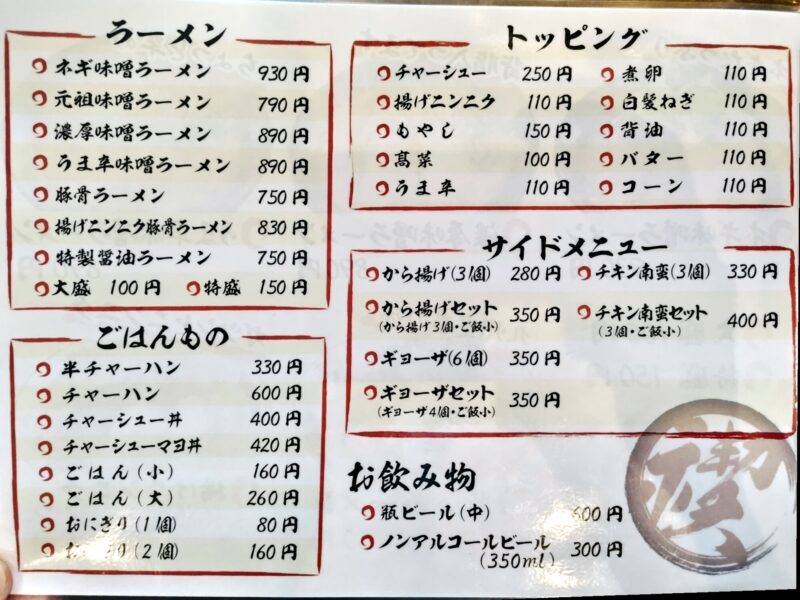 ラーメン
ネギ味噌ラーメン 930円
元祖味噌ラーメン 790円
濃厚味噌ラーメン 890円
うま辛味噌ラーメン 890円
豚骨ラーメン 750円
揚げニンニク豚骨ラーメン 830円
特製醤油ラーメン 750円
大盛 100円 特盛 150円
ごはんもの
半チャーハン 330円
チャーハン 600円
チャーシュー丼 400円
チャーシューマヨ丼 420円
ごはん(小) 160円
ごはん(大) 260円
おにぎり(1個) 80円
おにぎり(2個) 160円
トッピング
チャーシュー 250円 煮卵 110円
揚げニンニク 110円 白髪ねぎ 110円
もやし 150円 背油 110円
髙菜 100円 バター 110円
うま辛 110円 コーン 110円
サイドメニュー
から揚げ(3個) 280円 チキン南蛮(3個) 330円
から揚げセット 350円 チキン南蛮セット 400円
(から揚げ3個・ご飯小) (3個・ご飯小)
ギョーザ(6個) 350円
ギョーザセット 350円
(ギョーザ4個・ご飯小)
お飲み物
瓶ビール(中) 600円
ノンアルコールビール 300円
(350ml)